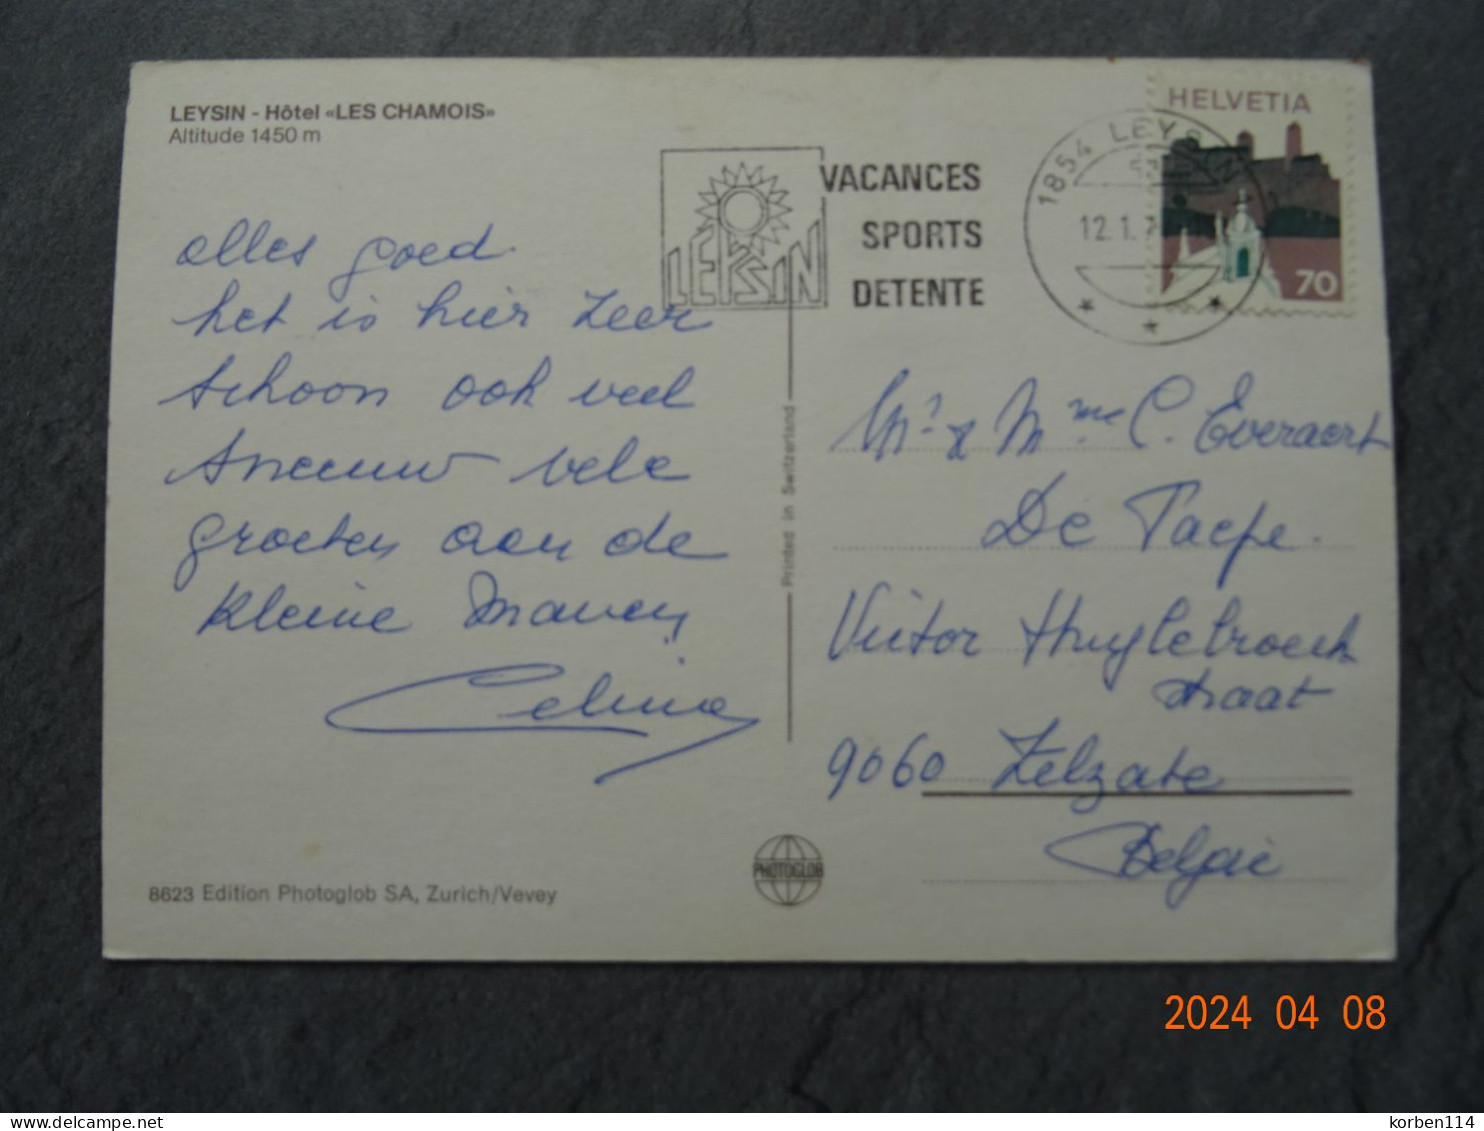 LEYSIN - Hôtel «LES CHAMOIS»
Altitude 1450 m
alles goed
het is hier zeer
schoon ook veel
sneeuw vele
groeten aan de
kleine
Celina
8623 Edition Photoglob SA, Zurich/Vevey
PHOTOGLOB
Printed in Switzerland
LEYSIN
VACANCES
SPORTS
DETENTE
1854 LEYSIN
12.1.7
HELVETIA
70
Mr & Mme C. Everaert
De Taeye.
Victor Huylebroeck
straat
9060 Zelzate
België
2024 04 08
delcampe.net
korben114